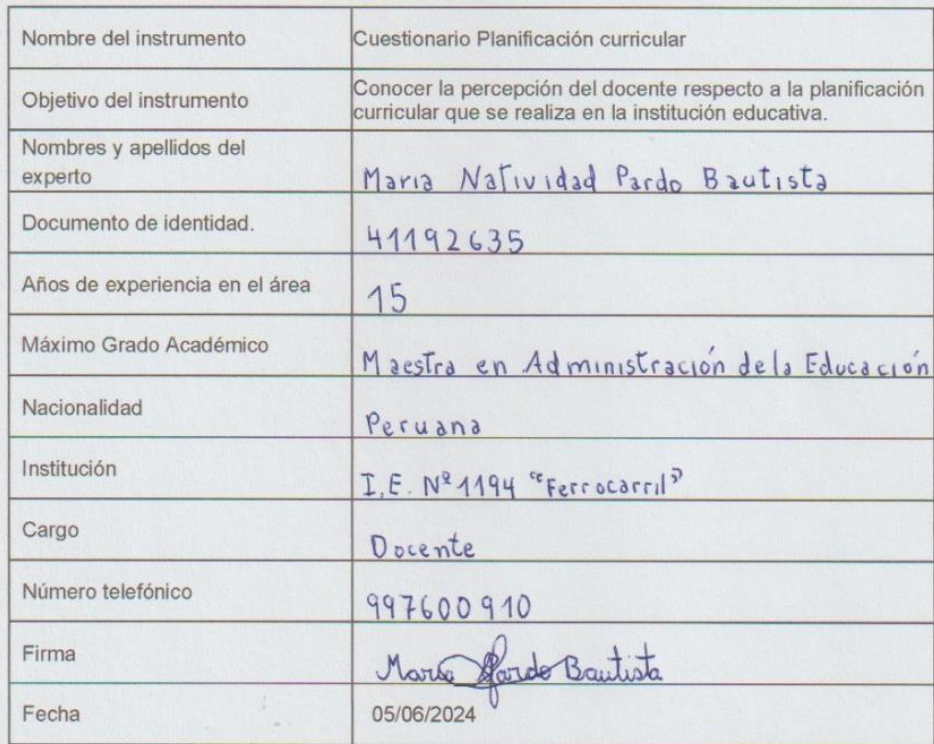 Nombre del instrumento
Cuestionario Planificación curricular
Objetivo del instrumento
Conocer la percepción del docente respecto a la planificación
curricular que se realiza en la institución educativa.
Nombres y apellidos del
experto
Maria Natividad Pardo Bautista
Documento de identidad.
41192635
Años de experiencia en el área
15
Máximo Grado Académico
Maestra en Administración de la Educación
Nacionalidad
Peruana
Institución
I.E. Nº 1194 "Ferrocarril"
Cargo
Docente
Número telefónico
997600910
Firma
María Pardo Bautista
Fecha
05/06/2024